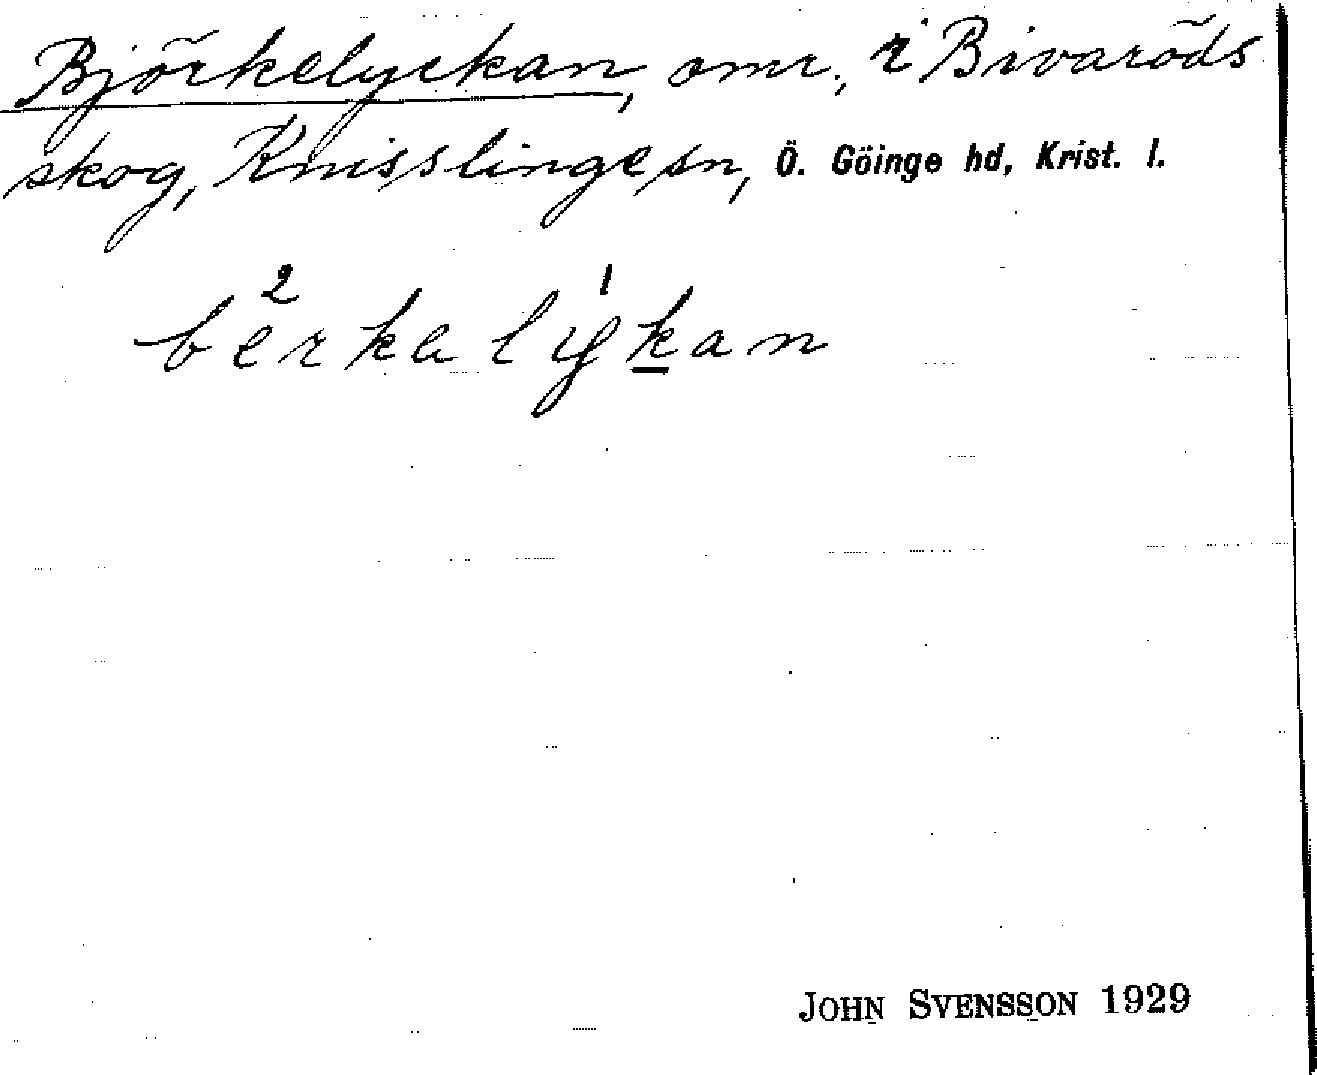 Björkelyckan, omr., i Bivaröds
skog, Knisslinge sn, Ö. Göinge hd, Krist. l.
2 1
bërkalykan
JOHN SVENSSON 1929